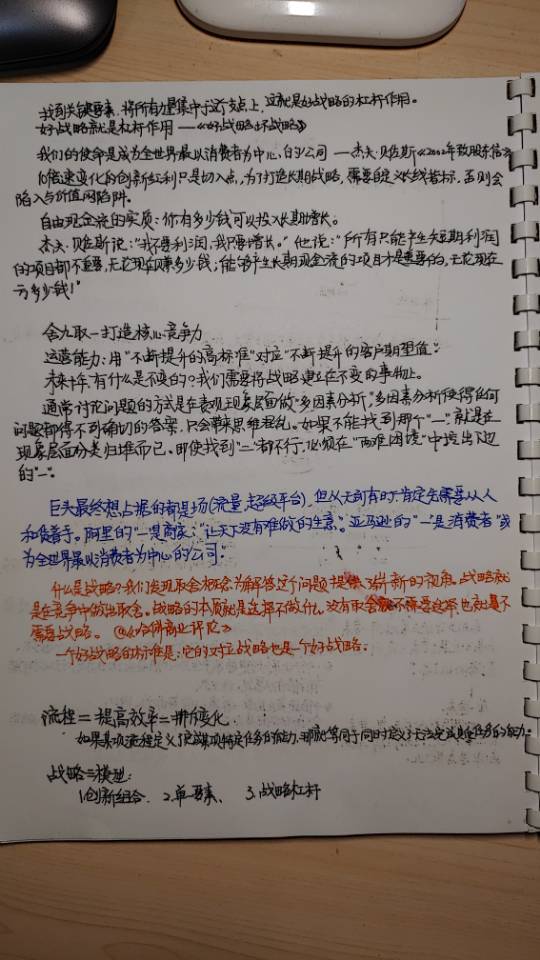 找到关键要素,将所有力量集中于这个支点上,这就是好战略的杠杆作用。
好战略就是杠杆作用——《好战略坏战略》
我们的使命是成为全世界最以消费者为中心的公司——杰夫·贝佐斯《2002年致股东信》
10倍速变化的创新红利只是切入点,为了打造长期战略,需要自定义长线指标,否则会
陷入与价值网陷阱。
自由现金流的实质:你有多少钱可以投入长期增长。
杰夫·贝佐斯说:"我不要利润,我只要增长。"他说:"所有只能产生短期利润
的项目都不重要,无论现在赚多少钱;能够产生长期现金流的项目才是重要的,无论现在
亏多少钱!"
舍九取一打造核心竞争力
运营能力:用"不断提升的高标准"对应"不断提升的客户期望值":
未来十年有什么是不变的?我们需要将战略建立在不变的事物上。
通常讨论问题的方式是在表观现象层面做"多因素分析","多因素分析使得任何
问题都得不到确切的答案,只会带来思维混乱。如果不能找到那个"一",就是在
现象层面分类归堆而已。即使找到"二"都不行,必须在"两难困境"中挖出下边
的"一"。
巨头最终想占据的都是场(流量,超级平台),但从无到有时肯定先需要从人
和货着手。阿里的"一"是商家:"让天下没有难做的生意"。亚马逊的"一"是消费者"成
为全世界最以消费者为中心的公司"
什么是战略?我们发现取舍概念为解答这个问题提供了崭新的视角。战略就
是在竞争中做出取舍。战略的本质就是选择不做什么,没有取舍就不需要选择也就是不
需要战略。 《哈佛商业评论》
一个好战略的标准是:它的对立战略也是一个好战略。
流程=提高效率=排斥变化.
如果某项流程定义了完成某项特定任务的能力,那就等同于同时定义了无法完成其他任务的能力。
战略三模型:
1.创新组合、 2.单一要素、 3.战略杠杆